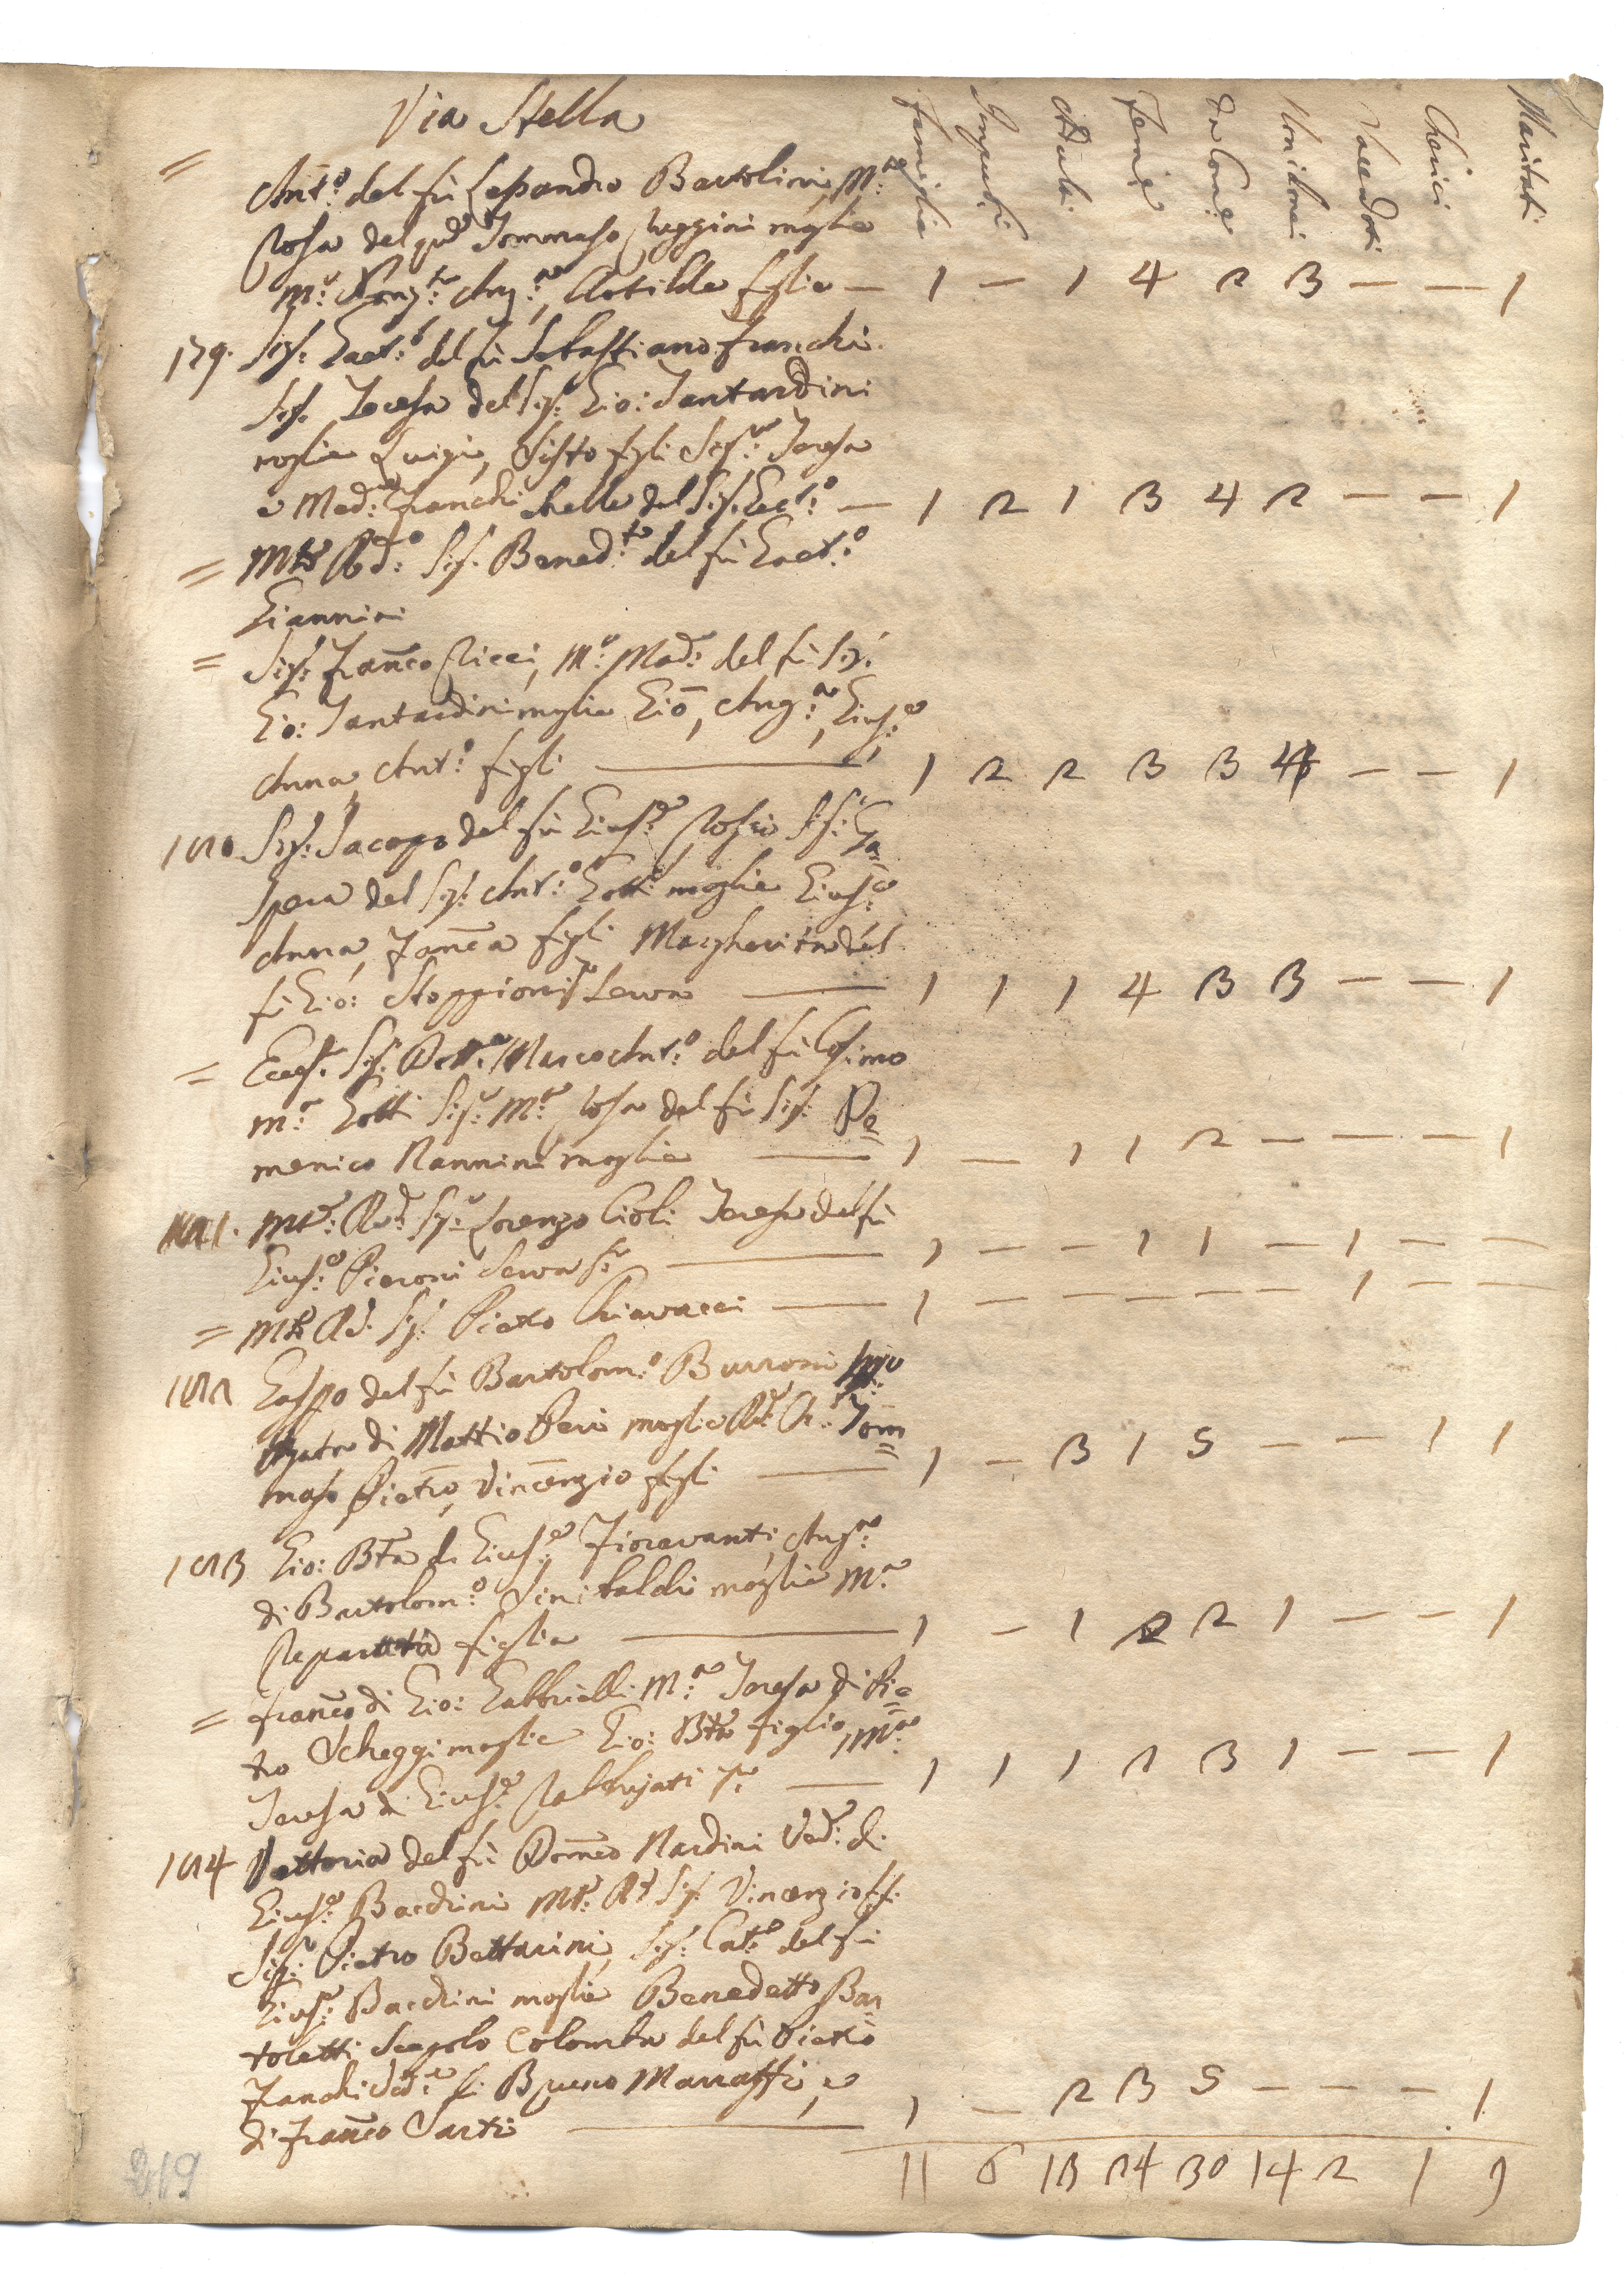 Via Stella
Famiglie Impuberi Adulti Femine Da Com: Non Com: Sacerdoti Cherici Maritati
= Ant:o del fù Lessandro Bartolini, M:a
Rosa del qud Tommaso Reggini moglie
M:a Ang:a, Clotilde figlie — 1 — 1 4 2 3 — — 1
179. Sig: Gaet:o del fù Sebastiano Franchi
Sig. Teresa del Sig: Gio: Tantardini
moglie Luigi, Sisto figli Sig:ra Teresa
e Mad:a Franchi del Sig. Gaet:o — 1 2 1 3 4 2 — — 1
= Rd:o Sig. Bened:to del fù Gaet:o
Giannini
= Sig: Franco Ricci, M:a Mad: del fù Sig:
Gio: Tantardini moglie Gio, Ang:a, Gius:e
Anna, Ant:o figli — 1 2 2 3 3 4 — — 1
180 Sig: Jacopo del fù Gius:e Rossi Sig: Ga=
spera del Sig: Ant:o Gotti moglie Gius:e
Anna, Franca figli Margherita del
fù Gio: Stoppioni Serva — 1 1 1 4 3 3 — — 1
= Sig. Dott:e Marco Ant:o del fù Cosimo
m:a Gotti Sig:ra M:a Rosa del fù Sig: Do=
menico Nannini moglie — 1 — 1 1 2 — — — 1
181. Rd: Sig: Lorenzo Cioli Teresa del fù
Gius:e Pieroni Serva — 1 — — 1 1 — 1 — —
= Rd. Sig: Pietro Chiavacci — 1 — — — — — 1 — —
182 Gaspo del fù Bartolom:o Burroni
di Mattio Peri moglie Tom=
maso Pietro, Vincenzio figli — 1 — 3 1 5 — — 1 1
183 Gio: Bta di Gius:e Fioravanti, Ang:a
di Bartolom:o Sinibaldi moglie M:a
Reparata figlia — 1 — 1 2 2 1 — — 1
= Franco di Gio: Gabbrielli M:a Teresa di Pie=
tro Scheggi moglie Gio: Bta figlio, M:a
Teresa di Gius:e Rabbujati — 1 1 1 2 3 1 — — 1
184 Vettoria del fù Domco Nardini Ved:a di
Gius:e Bardini Rd Sig. Vincenzio
Sig: Pietro Bettarini, Sig: Cat:a del fù
Gius:e Bardini moglie Benedetto Bar
toletti Scapolo Colomba del fù Pietro
Fanchi Ved:a di Bruno Marraffi, e
di Franco Sarti — 1 — 2 3 5 — — — 1
11 6 13 24 30 14 2 1 9
219